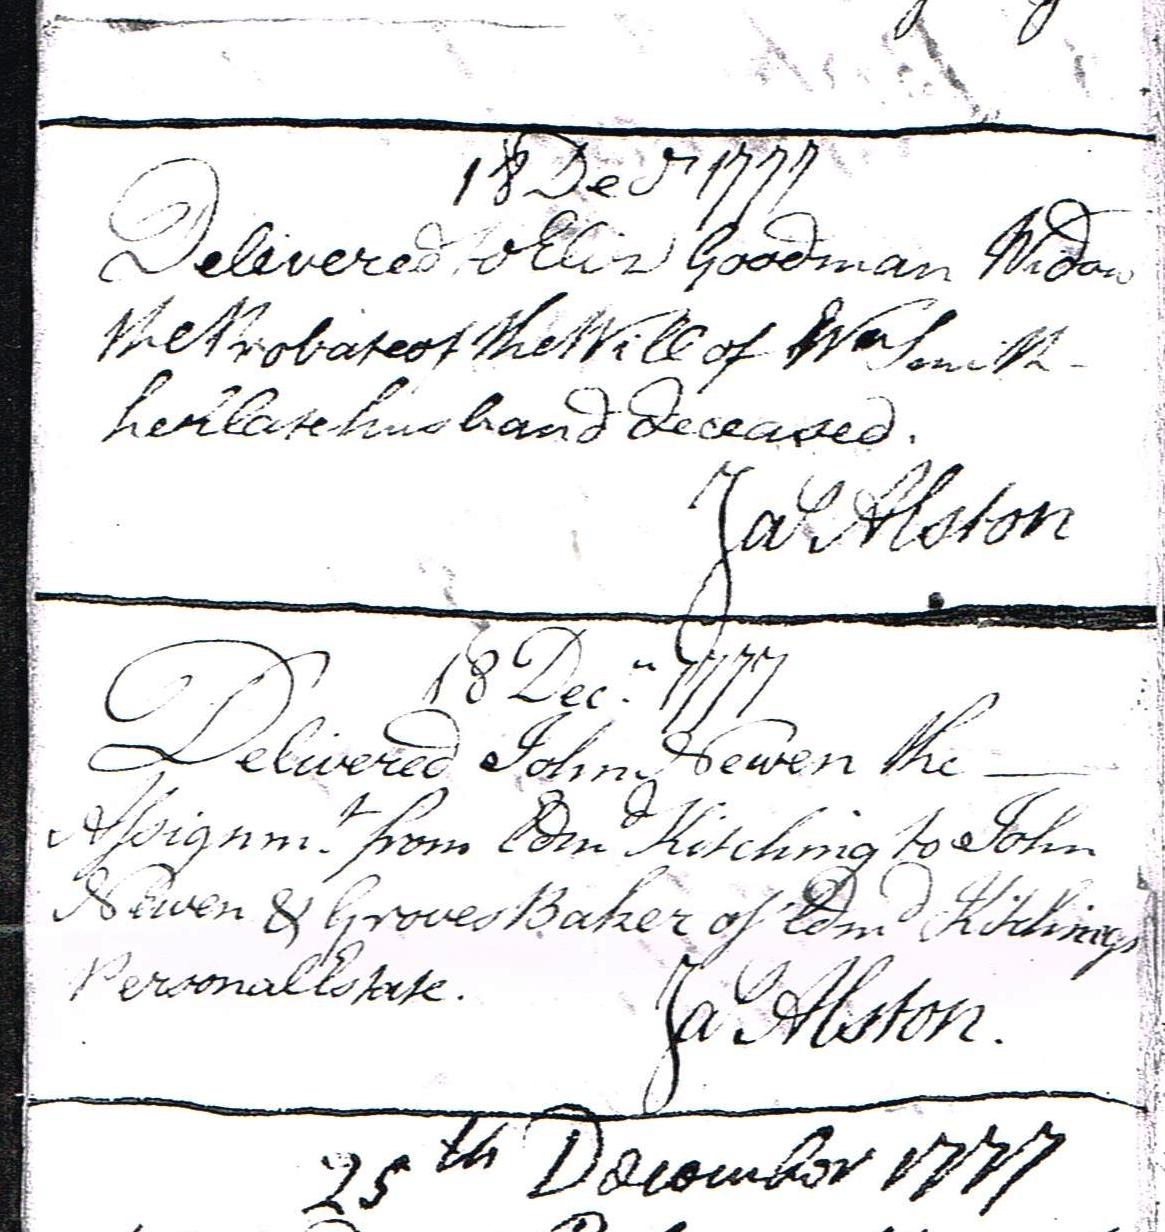 18 Decr 1777
Delivered to Eliz Goodman Widow
the Probate of the Will of Wm Smith
her late husband deceased.
Jas Alston
18 Decr 1777
Delivered John Newen the
Assignmt. from Edmd Kitching to John
Newen & Groves Baker of Edmd Kitchings
Personal Estate.
Jas Alston.
25th December 1777